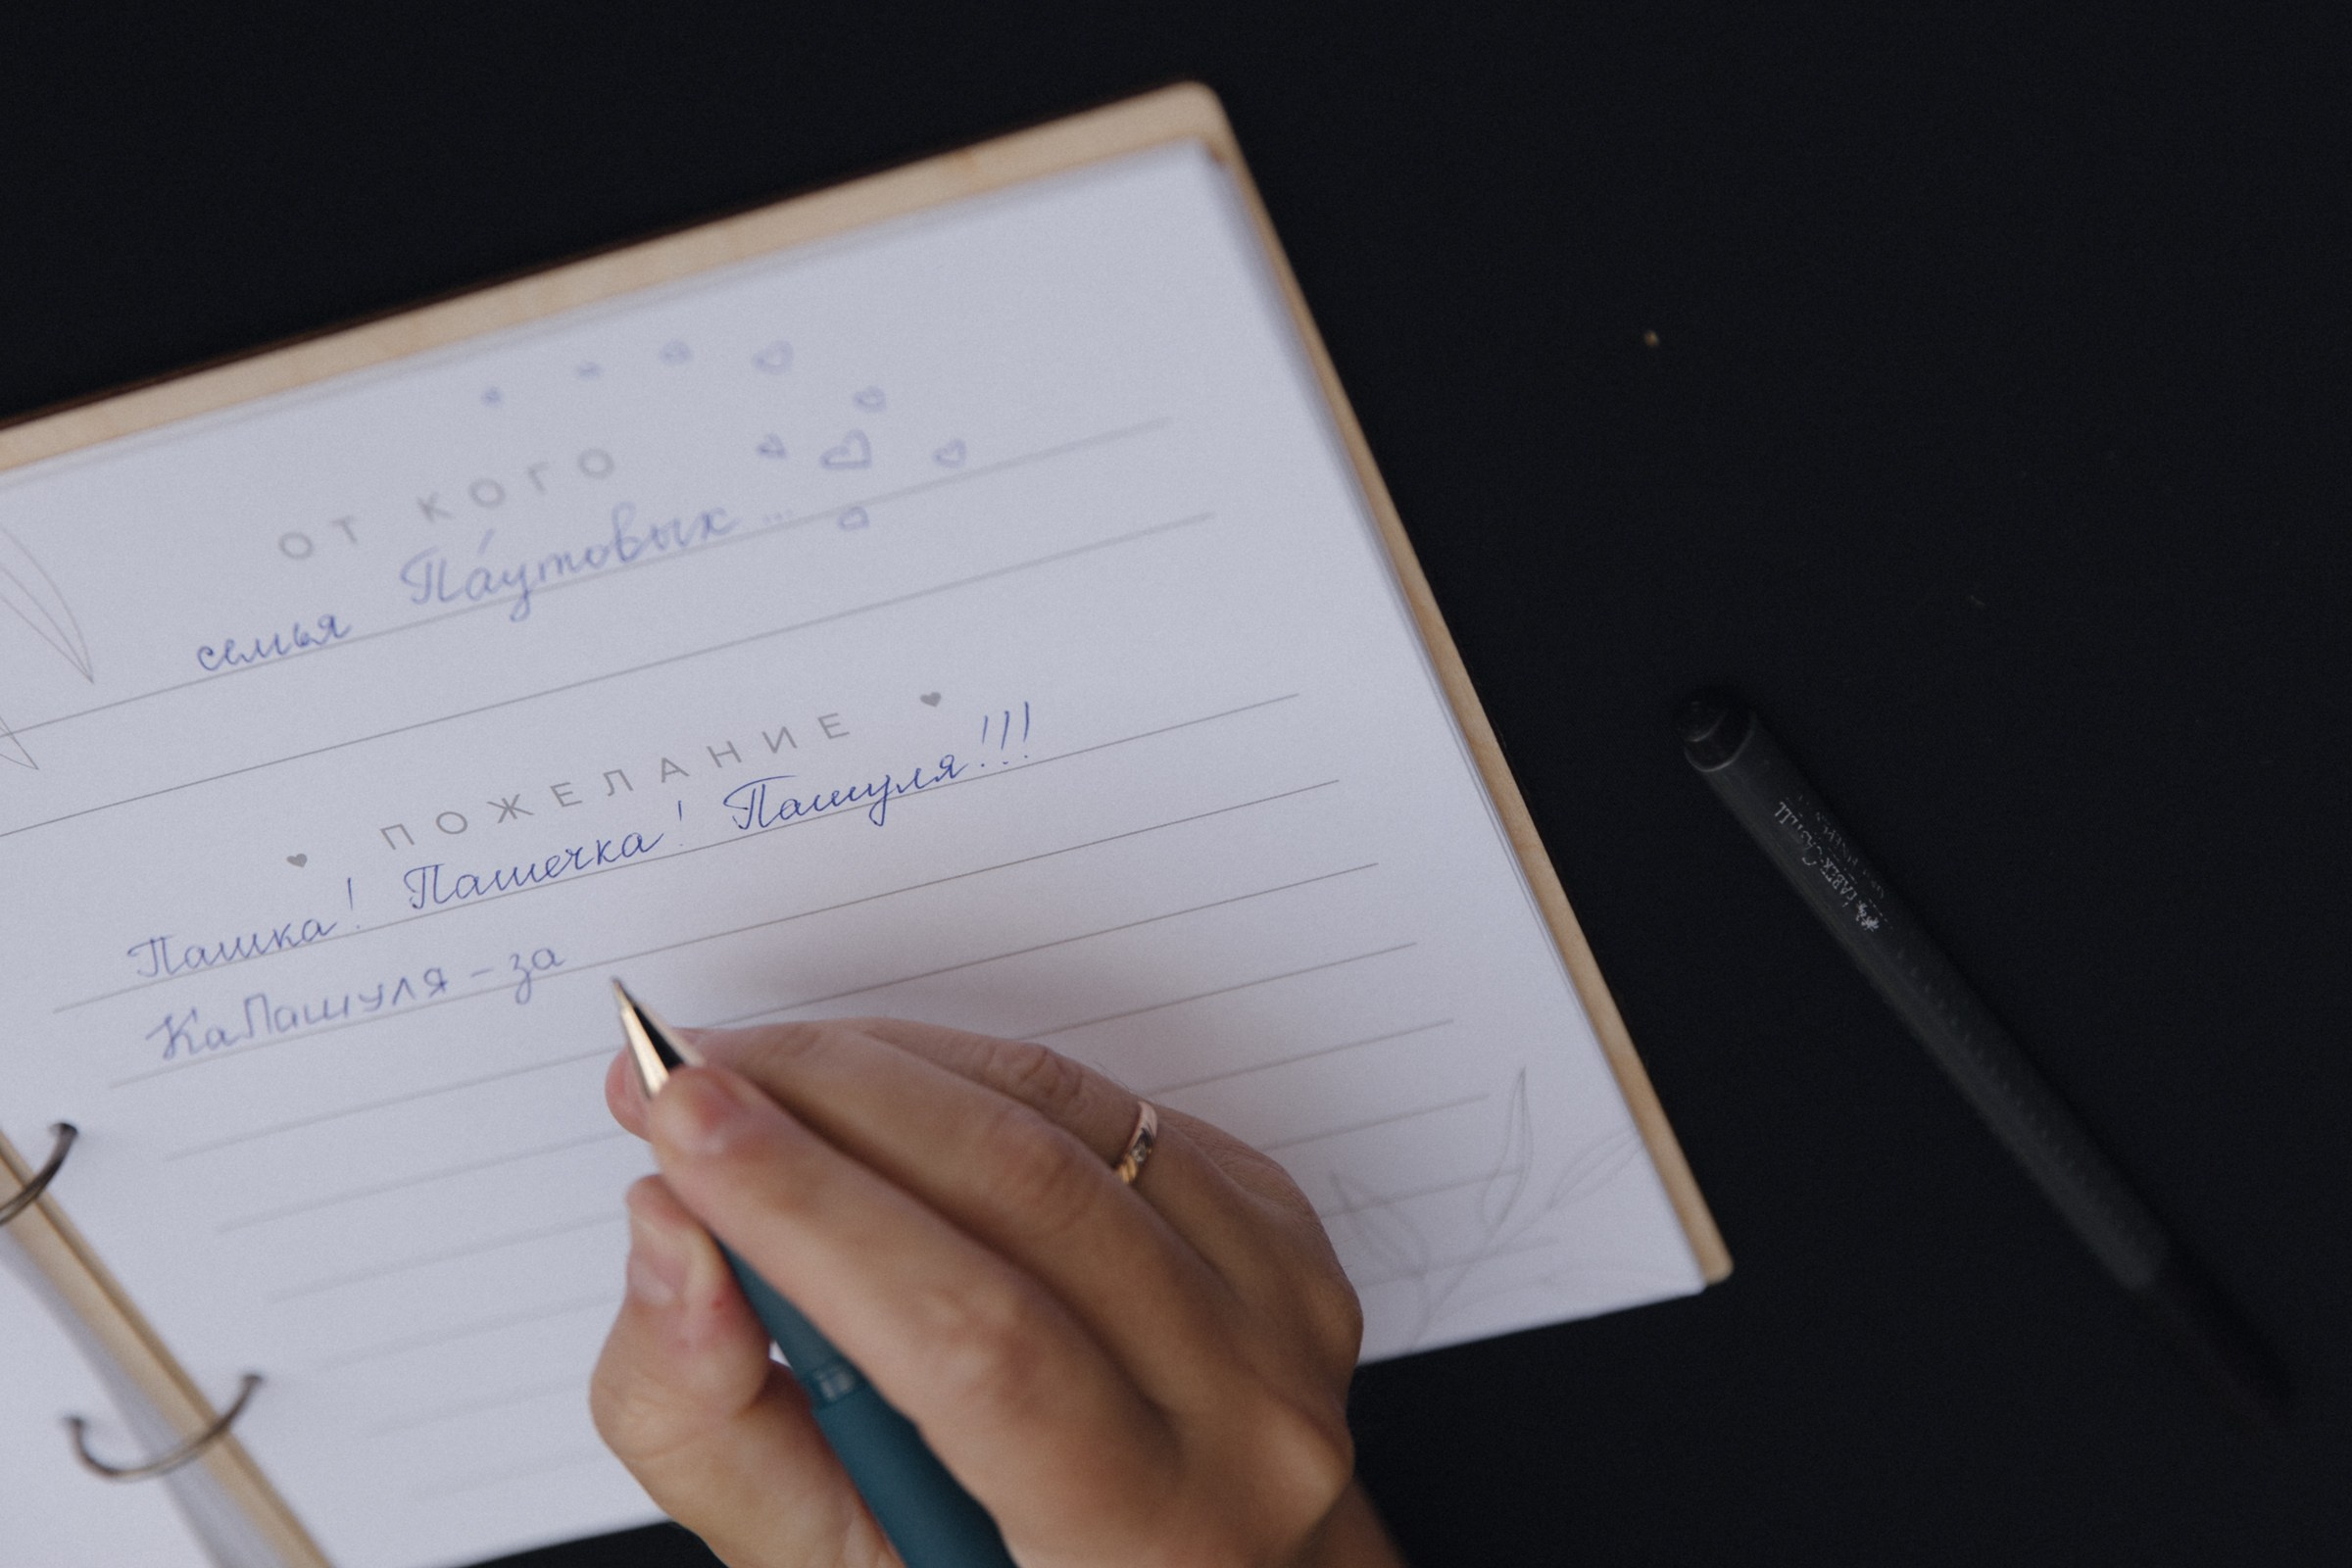 ОТ КОГО
семья Па́утовых ...
ПОЖЕЛАНИЕ
Пашка! Пашечка! Пашуля!!!
КаПашуля - за
FABER-CASTELL